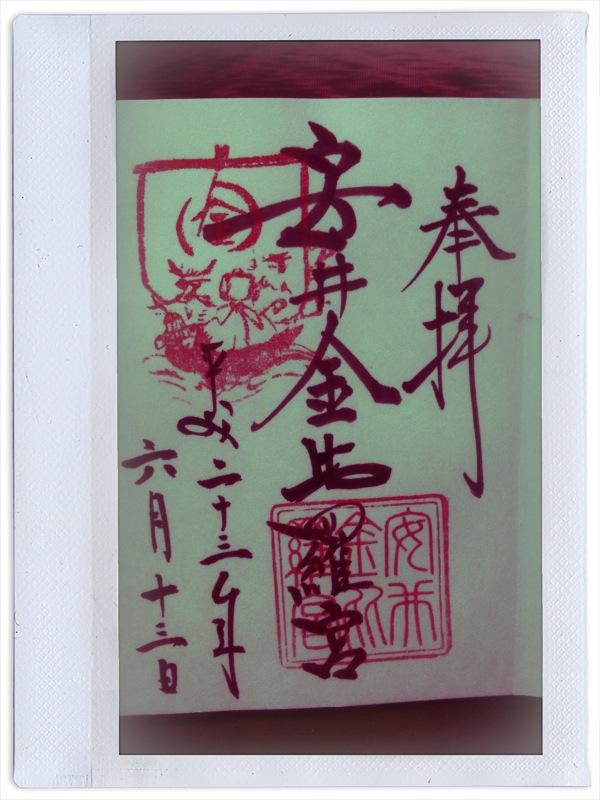 奉拝
安井金比羅宮
平成二十三年
六月十三日
金
安井
金比
羅宮